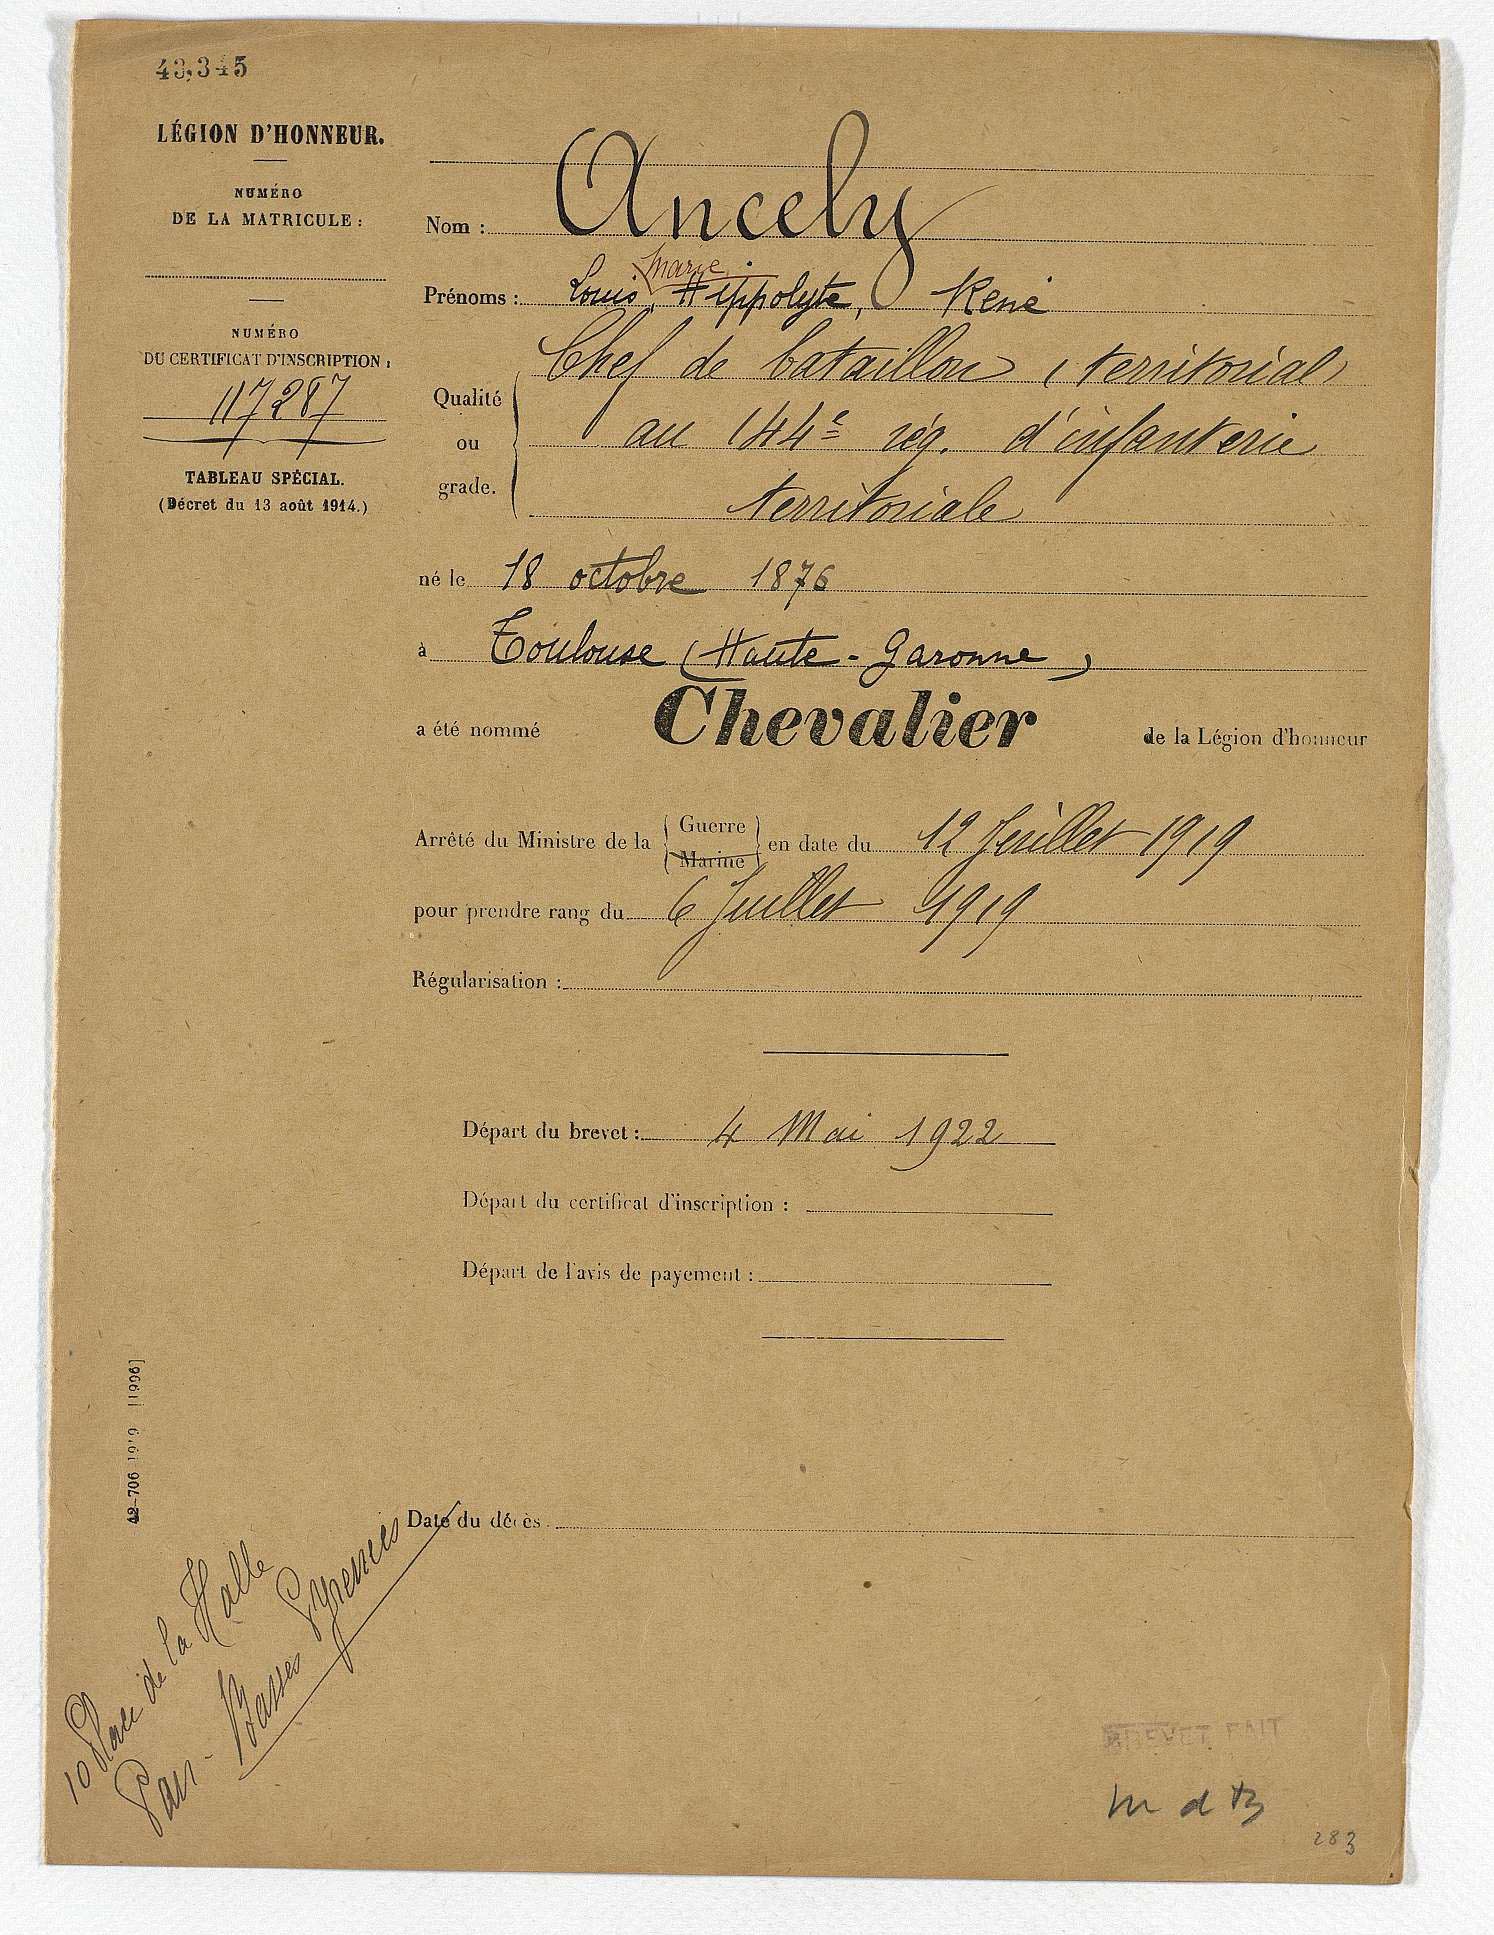 43,345
LÉGION D'HONNEUR.
NUMÉRO
DE LA MATRICULE :
NUMÉRO
DU CERTIFICAT D'INSCRIPTION :
117287
TABLEAU SPÉCIAL.
(Décret du 13 août 1914.)
Nom : Ancely
marie
Prénoms : Louis, Hippolyte, René
Qualité ou grade. Chef de bataillon (territorial)
au 144e rég. d'infanterie
territoriale
né le 18 octobre 1876
à Toulouse (Haute-Garonne)
a été nommé Chevalier de la Légion d'honneur
Arrêté du Ministre de la Guerre Marine en date du 12 Juillet 1919
pour prendre rang du 6 Juillet 1919
Régularisation :
Départ du brevet : 4 Mai 1922
Départ du certificat d'inscription :
Départ de l'avis de payement :
42-706 1919 [1906]
Date du décès
10 Place de la Halle
Pau - Basses Pyrenées
BREVET FAIT
283